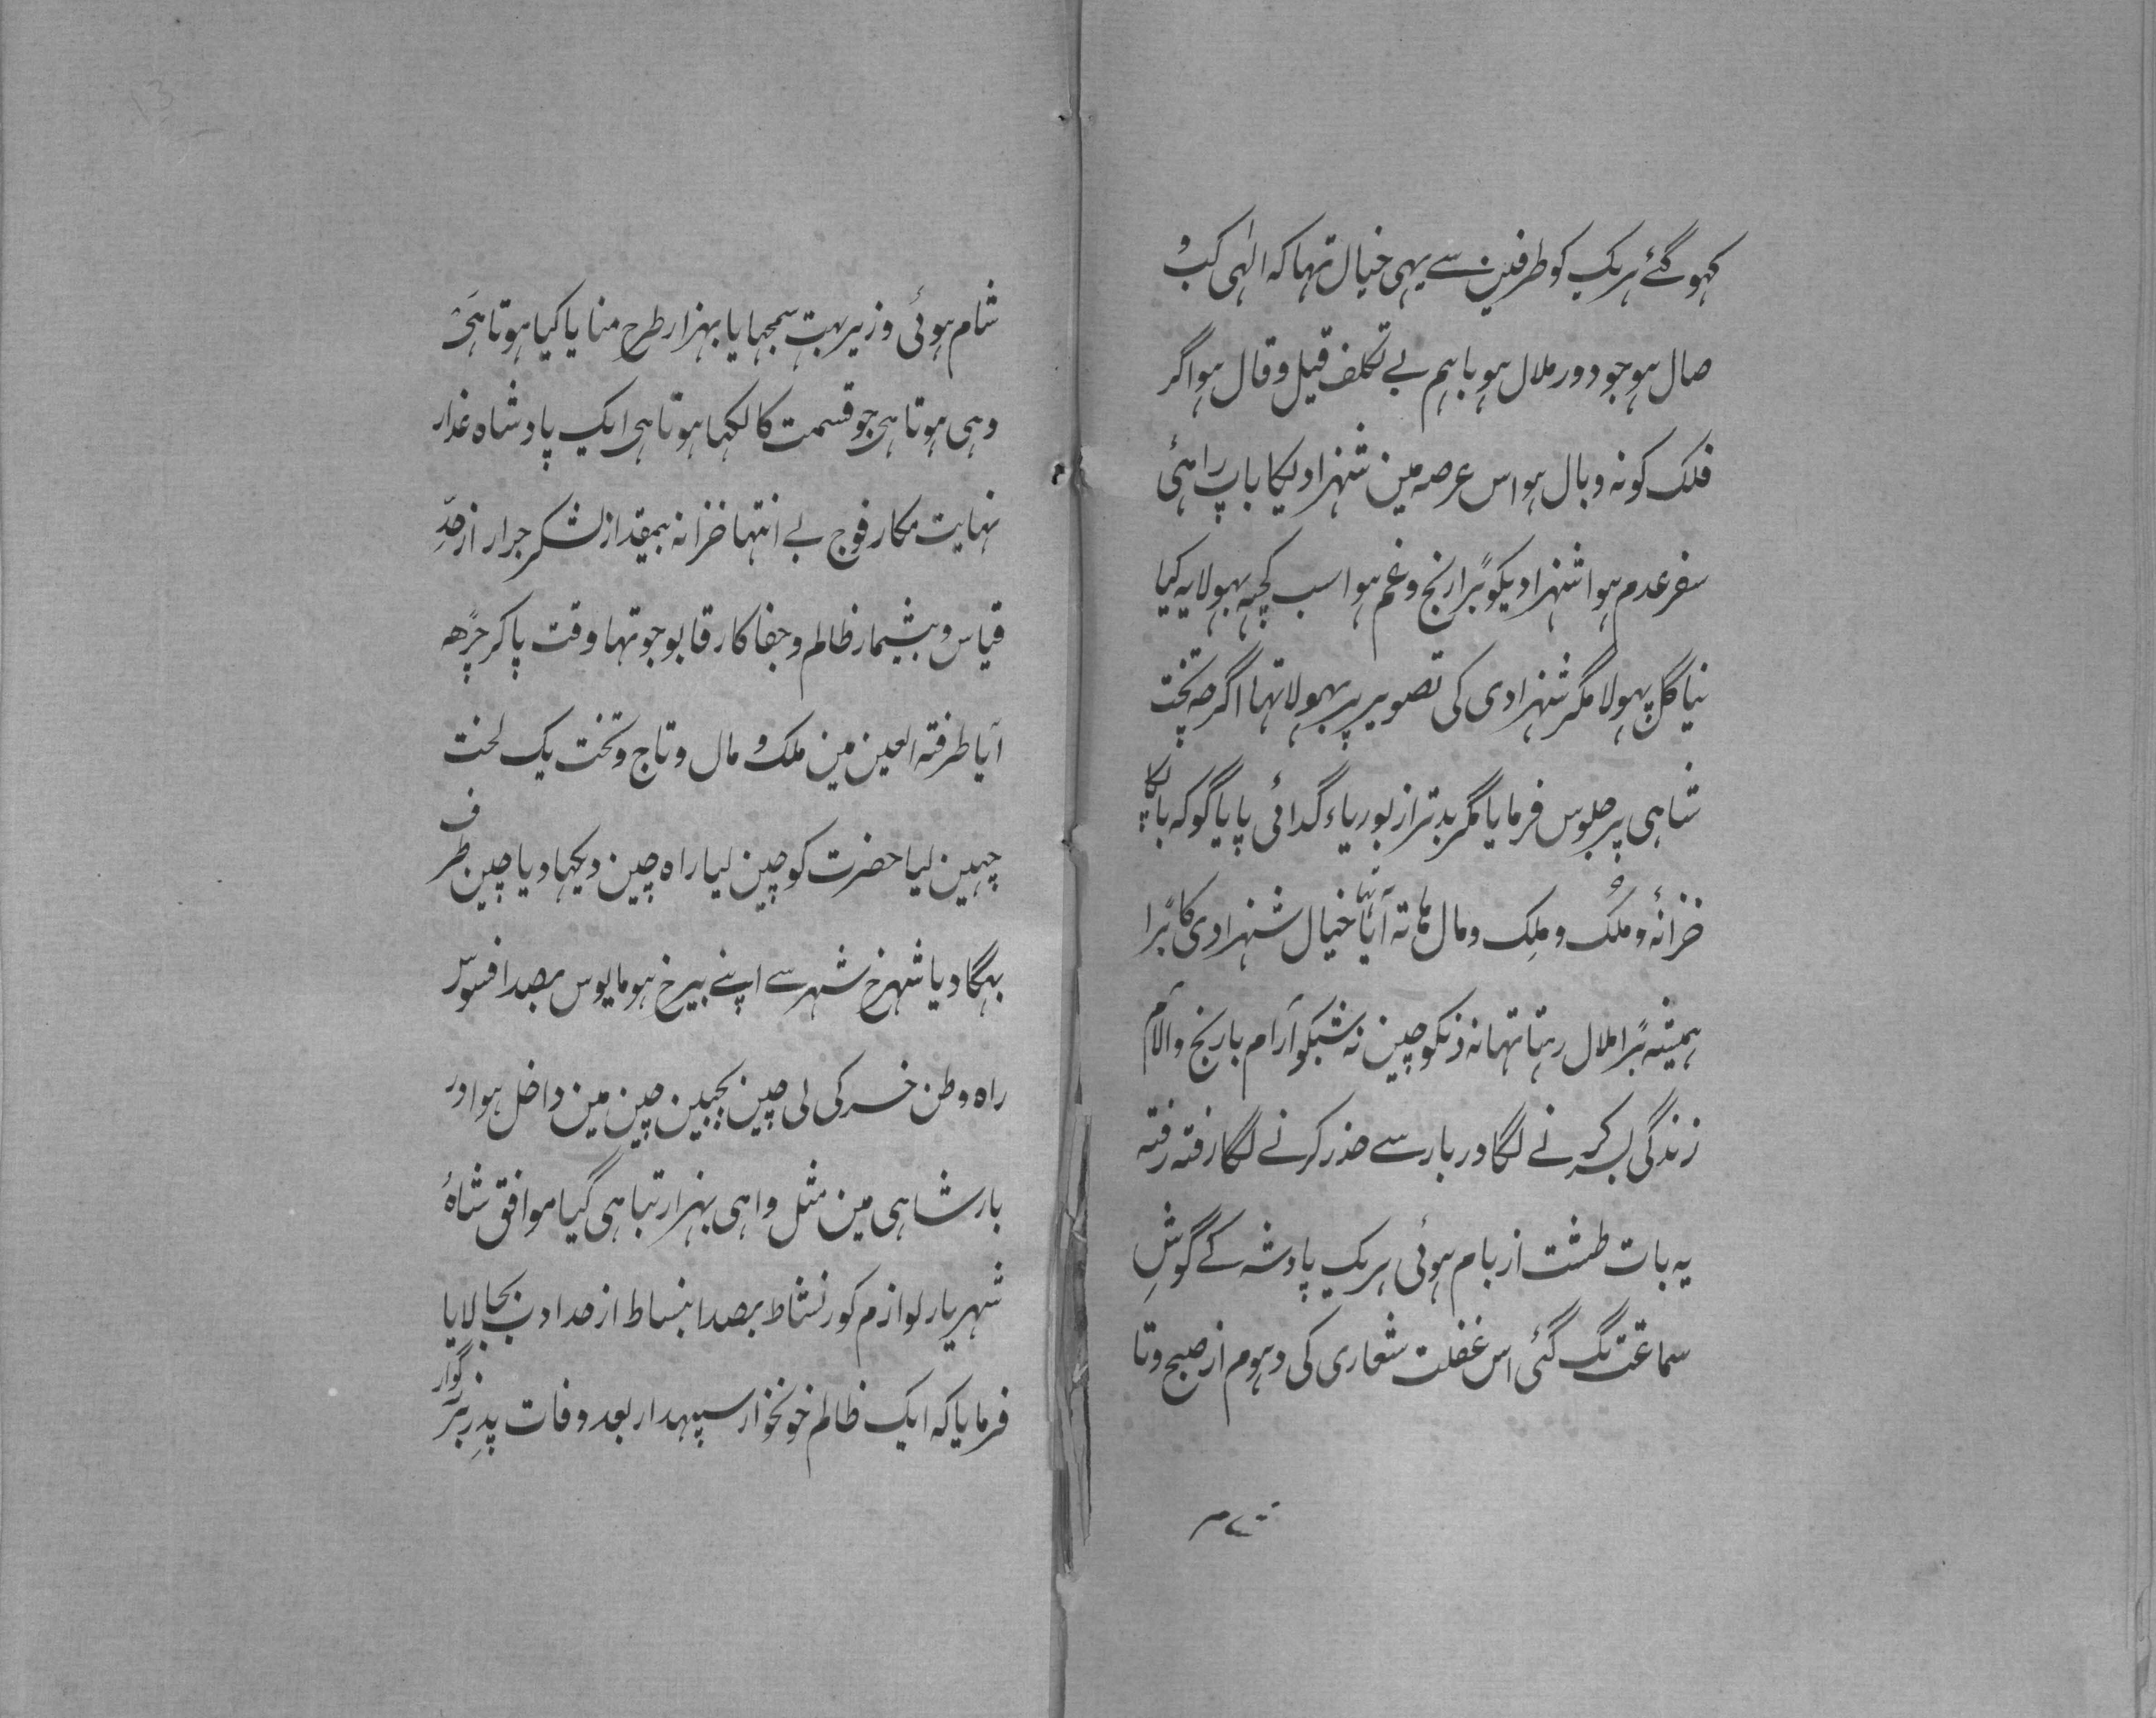 کہو گئے ہر یک کو طرفین سے یہی خیال تہا کہ الٰہی کب و
صال ہو جو دور ملال ہو باہم بے تکلف قیل و قال ہو اگر
فلک کو نہ وبال ہو اس عرصہ مین شہزادیکا باپ راہئی
سفر عدم ہوا شہزادیکو بڑا رنج و غم ہوا سب کچہہ بہولا یہ کیا
نیا گل پہولا مگر شہزادی کی تصویر پر بہولا تہا اگرچہ تخت
شاہی پر جلوس فرمایا مگر بدتر از بوریاء گدائی پایا گو کہ باپکا
خزانۂ و مُلک و مِلک و مال ہاتہ آیا پر خیال شہزادی کا بڑا
ہمیشہ بڑا ملال رہتا تہا نہ دنکو چین نہ شبکو آرام با رنج و الام
زندگی بسر کرنے لگا دربار سے حذر کرنے لگا رفتہ رفتہ
یہ بات طشت از بام ہوئی ہر یک پادشہ کے گوشِ
سماعت تگ گئی اس غفلت شعاری کی دہوم از صبح و تا
شام ہوئی وزیر بہت سمجہایا بہزار طرح منایا کیا ہوتا ہی
وہی ہوتا ہی جو قسمت کا لکہا ہوتا ہی ایک پادشاہ غدار
نہایت مکار فوج بے انتہا خزانہ بیمقدار لشکر جرار از حدِّ
قیاس و بیشمار ظالم و جفاکار قابو جو تہا وقت پا کر چڑھ
آیا طرفتہ العین مین ملک و مال و تاج و تخت یک لخت
چہین لیا حضرت کو چین لیا راہ چین دیکہا دیا چین طرف
بہگا دیا شہزخ شہر سے اپنے بیرخ ہو مایوس بصد افسوس
راہ وطن خسر کی لی چین بجبین چین مین داخل ہوا در
بار شاہی مین مثل واہی بہزار تباہی گیا موافق شاہ
شہریار لوازم کورنشاط بصد انبساط از حد ادب بجا لایا
فرمایا کہ ایک ظالم خونخوار سپہدار بعد وفات پدرِ بزرگوار